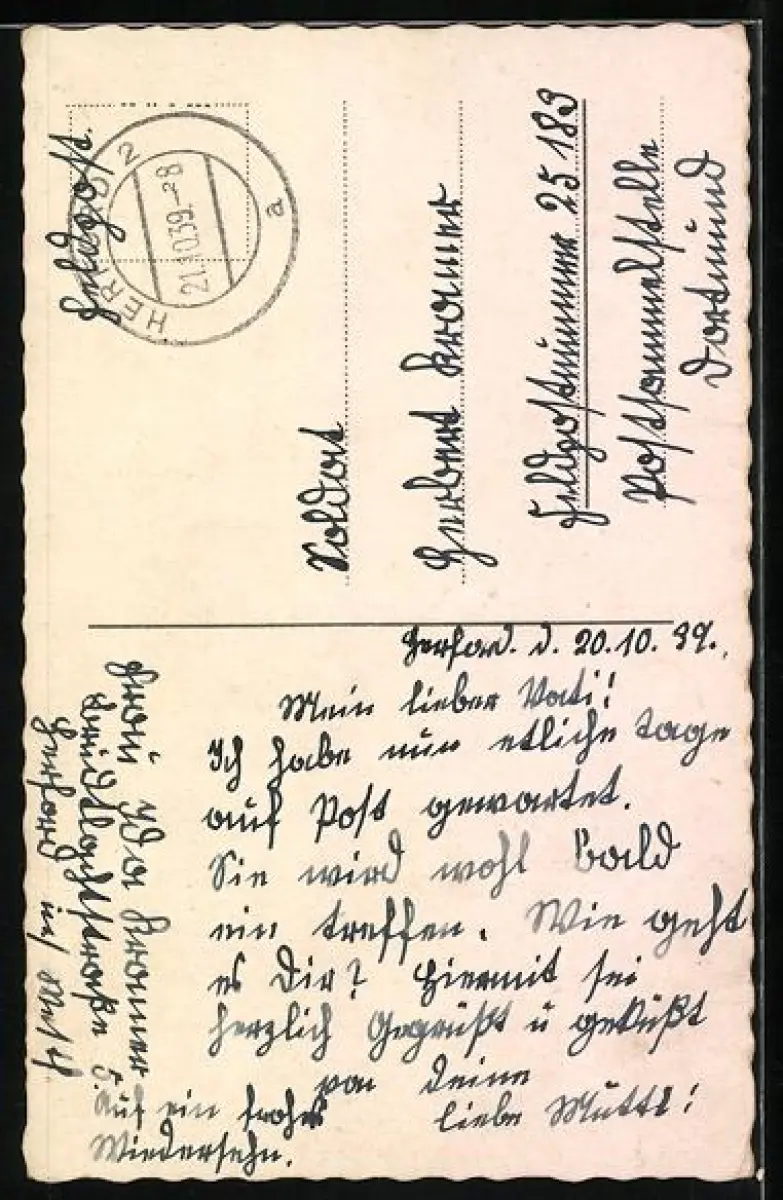 Feldpost.
HERFORD 2
21.10.39.-8
a
Soldat
Herbert Kramer
Feldpostnummer 25183
Postsammelstelle
Dortmund
Herford. d. 20.10.39.
Mein lieber Vati!
Ich habe nun etliche Tage
auf Post gewartet.
Sie wird wohl bald
ein treffen. Wie geht
es Dir? Hiermit sei
herzlich Gegrüßt u geküßt
von Deine
liebe Mutti!
Auf ein frohes
Wiedersehn.
Frau Kramer
5.
Herford i/